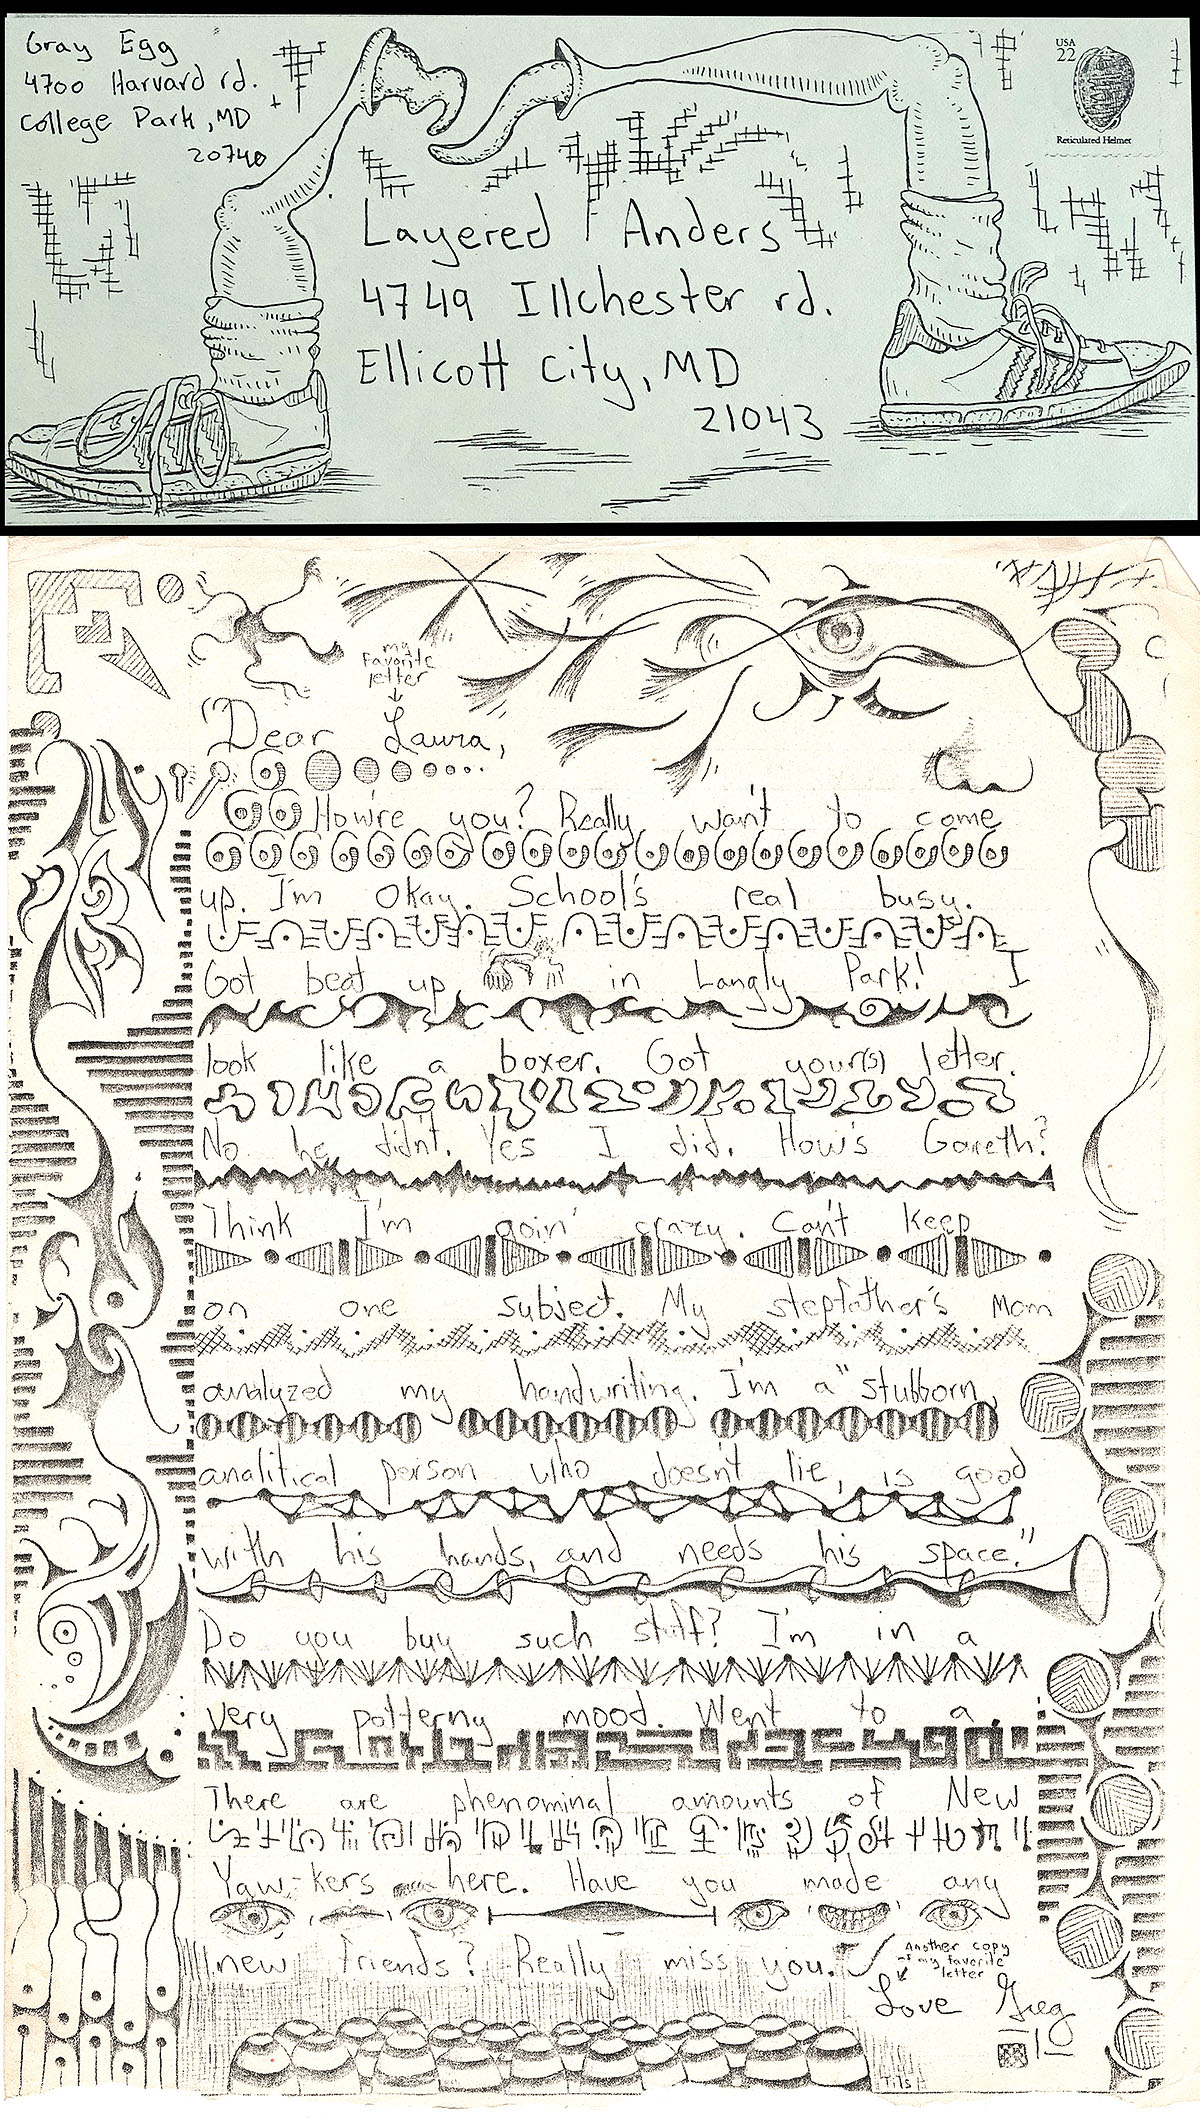 Gray Egg
4700 Harvard rd.
College Park, MD
20740
USA
22
Reticulated Helmet
Layered Anders
4749 Illchester rd.
Ellicott City, MD
21043
my
favorite
letter
Dear Laura,
How're you? Really wan't to come
up. I'm okay. School's real busy.
Got beat up in Langly Park! I
look like a boxer. Got your(s) letter.
No he didn't. Yes I did. How's Gareth?
Think I'm goin' crazy. Can't keep
on one subject. My stepfather's Mom
analyzed my handwriting. I'm a "stubborn,
analitical person who doesn't lie, is good
with his hands, and needs his space."
Do you buy such stuff? I'm in a
very patterny mood. Went to a
There are phenominal amounts of New
Yaw-kers here. Have you made any
new friends? Really miss you.
Another copy
of my favorite
letter
Love Greg
Tits